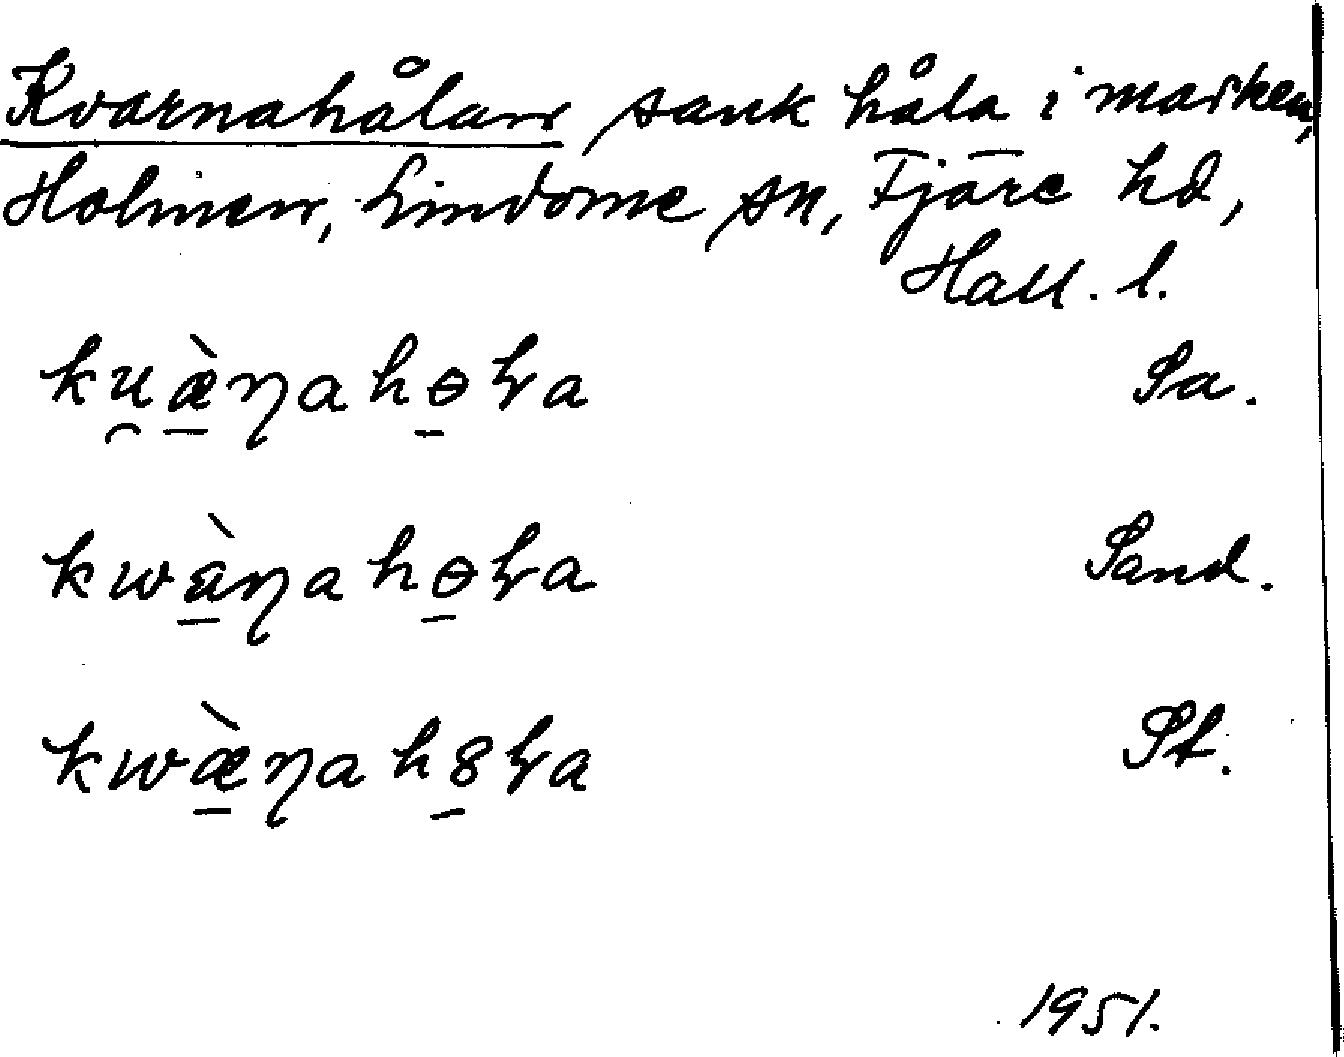 Kvarnahålan sank håla i marken,
Holmen, Lindome sn, Fjäre hd,
Hall. l.
ku̯æ̠̀ɳahɵ̠ɽa Sa.
kwà̠ɳahɵ̠ɽa Sand.
kwæ̠̀ɳah8̠ɽa St.
1951.